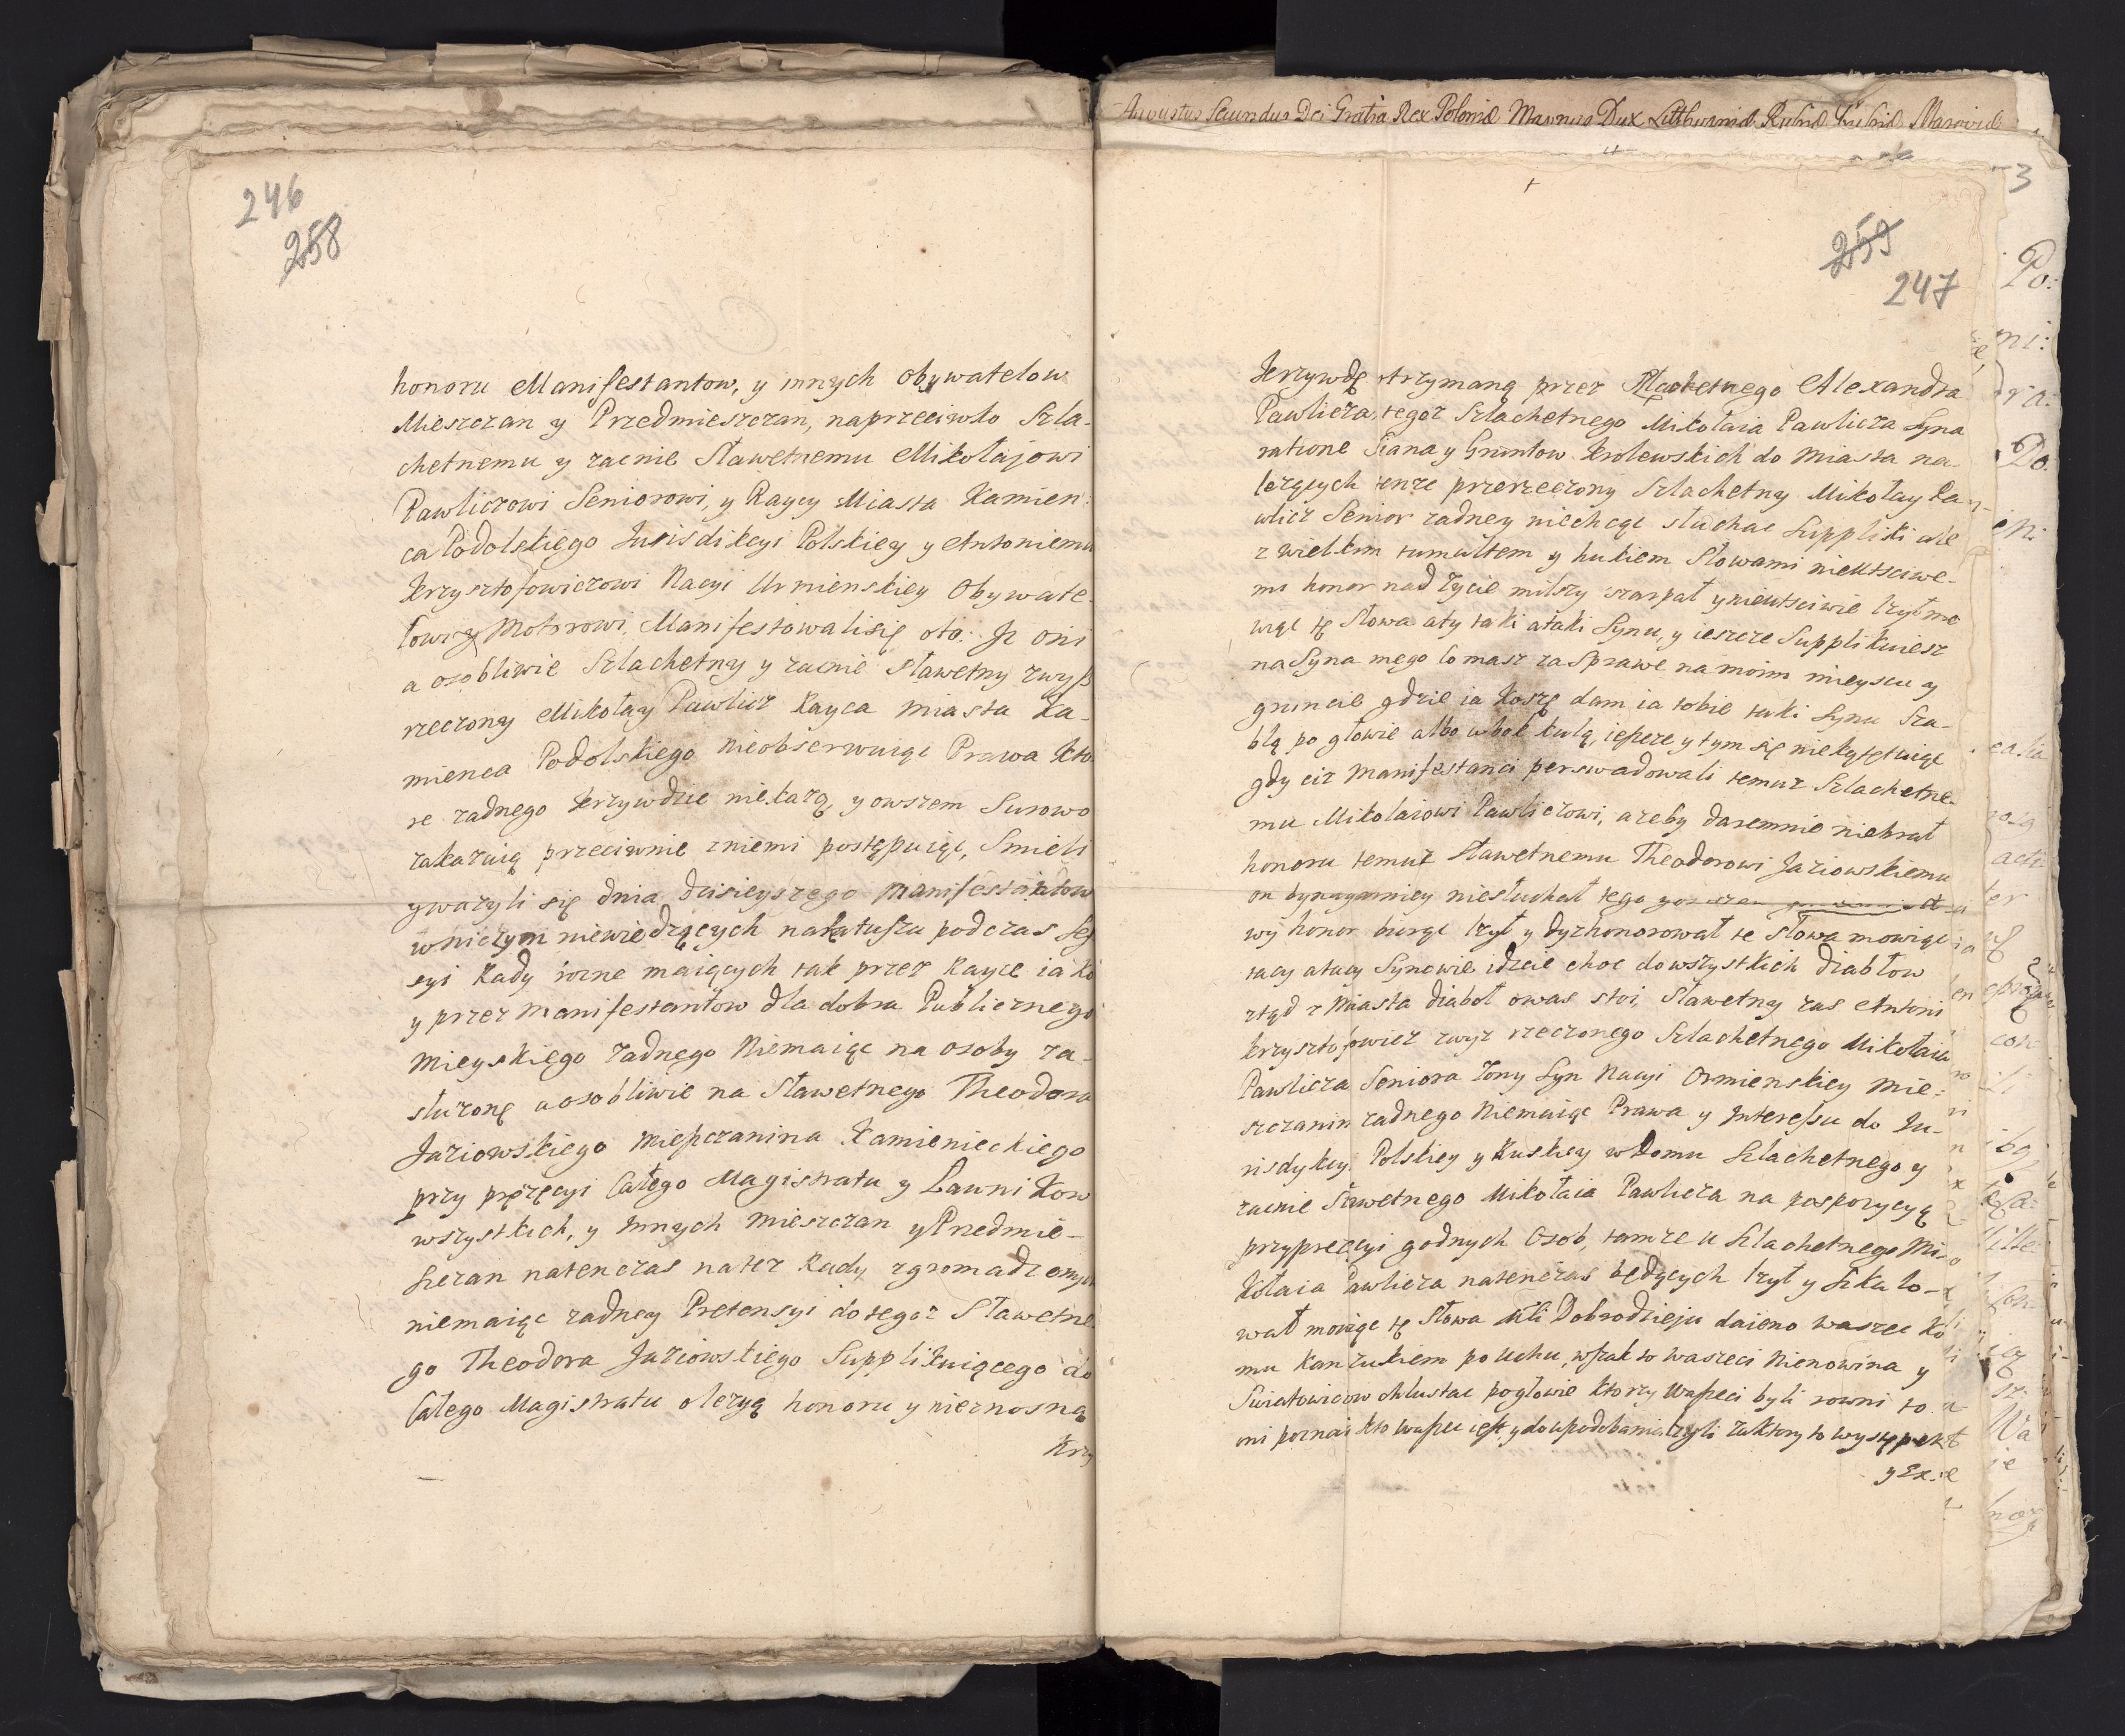 246
258
honoru Manifestantow, y innych Obywatelow
Mieszczan y Przedmieszczan, naprzeciwko Szla-
chetnemu y zacnie Sławetnemu Mikołajowi
Pawliczowi Seniorowi, y Raycy Miasta Kamien:
ca Podolskiego Jurisdikcyi Polskiey y Antoniemu
Krzysztofowiczowi Nacyi Urmienskiey Obywate-
lowi y Motorowi, Manifestowali się oto: Jz oni
a osobliwie Szlachetny y zacnie Sławetny zwyß
rzeczony Mikołay Pawlicz Rayca Miasta Ka-
mienca Podolskiego nieobserwuiąc Prawa kto-
re zadnego krzywdzic niekażą, y owszem Surowo
zakazuią przeciwnie zniemi postępuiąc, Smieli
y wazyli się dnia dzisieyszego Manifestantow
wniczym niewiedzących naRatuszu podczas Ses
syi Rady rozne maiących tak przez Rayce iako
y przez Manifestantow dla dobra Publicznego
Mieyskiego zadnego Niemaiąc na osoby za-
służonę a osobliwie na Sławetnego Theodora
Jaziowskiego Mießczanina Kamienieckiego
przy pręzęcyi Całego Magistratu y Ławnikow
wszystkich, y Innych Mieszczan y Przedmie-
szczan natenczas na tez Rady zgromadzonych
niemaiąc zadney Pretensyi do tegoz Sławetne-
go Theodora Jaziowskiego Supplikuiącego do
Całego Magistratu o lezyą honoru y nieznosną
Krzy
Augustus Secundus Dei Gratia Rex Poloniæ Magnus Dux Lithvaniæ Russiæ Prussiæ Masoviæ
3
259
247
Krzywdę otrzymaną przez Szlachetnego Alexandra
Pawlicza, tegoz Szlachetnego Mikołaia Pawlicza Syna
ratione Siana y Gruntow Krolewskich do Miasta na-
lezących tenze przerzeczony Szlachetny Mikołay Pa-
wlicz Senior zadney niechcąc słuchac Suppliki ale
z wielkim tumultem y hukiem Słowami nieutsciwe-
mi honor nad zycie milszy szarpał y nieutsciwie lzył mo
wiąc tę Słowa a ty taki a taki Synu, y ieszcze Supplikuiesz
na Syna mego co masz za Sprawe na moim mieyscu y
gruncie gdzie ia Koszę dam ia tobie taki Synu Sza-
blą po głowie albo w bok kulą, ießcze y tym się
gdy ciz Manifestanci perswadowali temuz Szlachetne-
mu Mikolaiowi Pawliczowi, azeby daremnie niebrał
honoru temuz Sławetnemu Theodorowi Jaziowskiemu
on bynaymniey niesłuchał tego
wy honor biorąc lzył y dyzhonorował te Słowa mowiąc
tacy a tacy Synowie idzcie choc do wszystkich diabłow
ztąd z Miasta diaboł o was stoi, Sławetny zas Antoni
Krzysztofowicz zwyz rzeczonego Szlachetnego Mikołaia
Pawlicza Seniora Zony Syn Nacyi Ormienskiey Mie:
szczanin zadnego Niemaiąc Prawa y Interessu do Ju-
risdykcyi Polskiey y Ruskiey w Domu Szlachetnego y
zacnie Sławetnego Mikołaia Pawlicza na posporycyą
przyprezęcyi godnych Osob, tamze u Szlachetnego Mi-
Kołaia Pawlicza natenczas będących lzył y szka lo-
wał mowiąc tę Słowa Mći Dobrodzieju daieno waszec ko
mu Kanzukiem po uchu, wszak to waszeci Nienowina y
Swiatowicow chlustac pogłowie ktorzy Waßeci byli rowni to
oni poznai kto waßec iest y doupodobania lzyli zaktory to występek
y Ex.